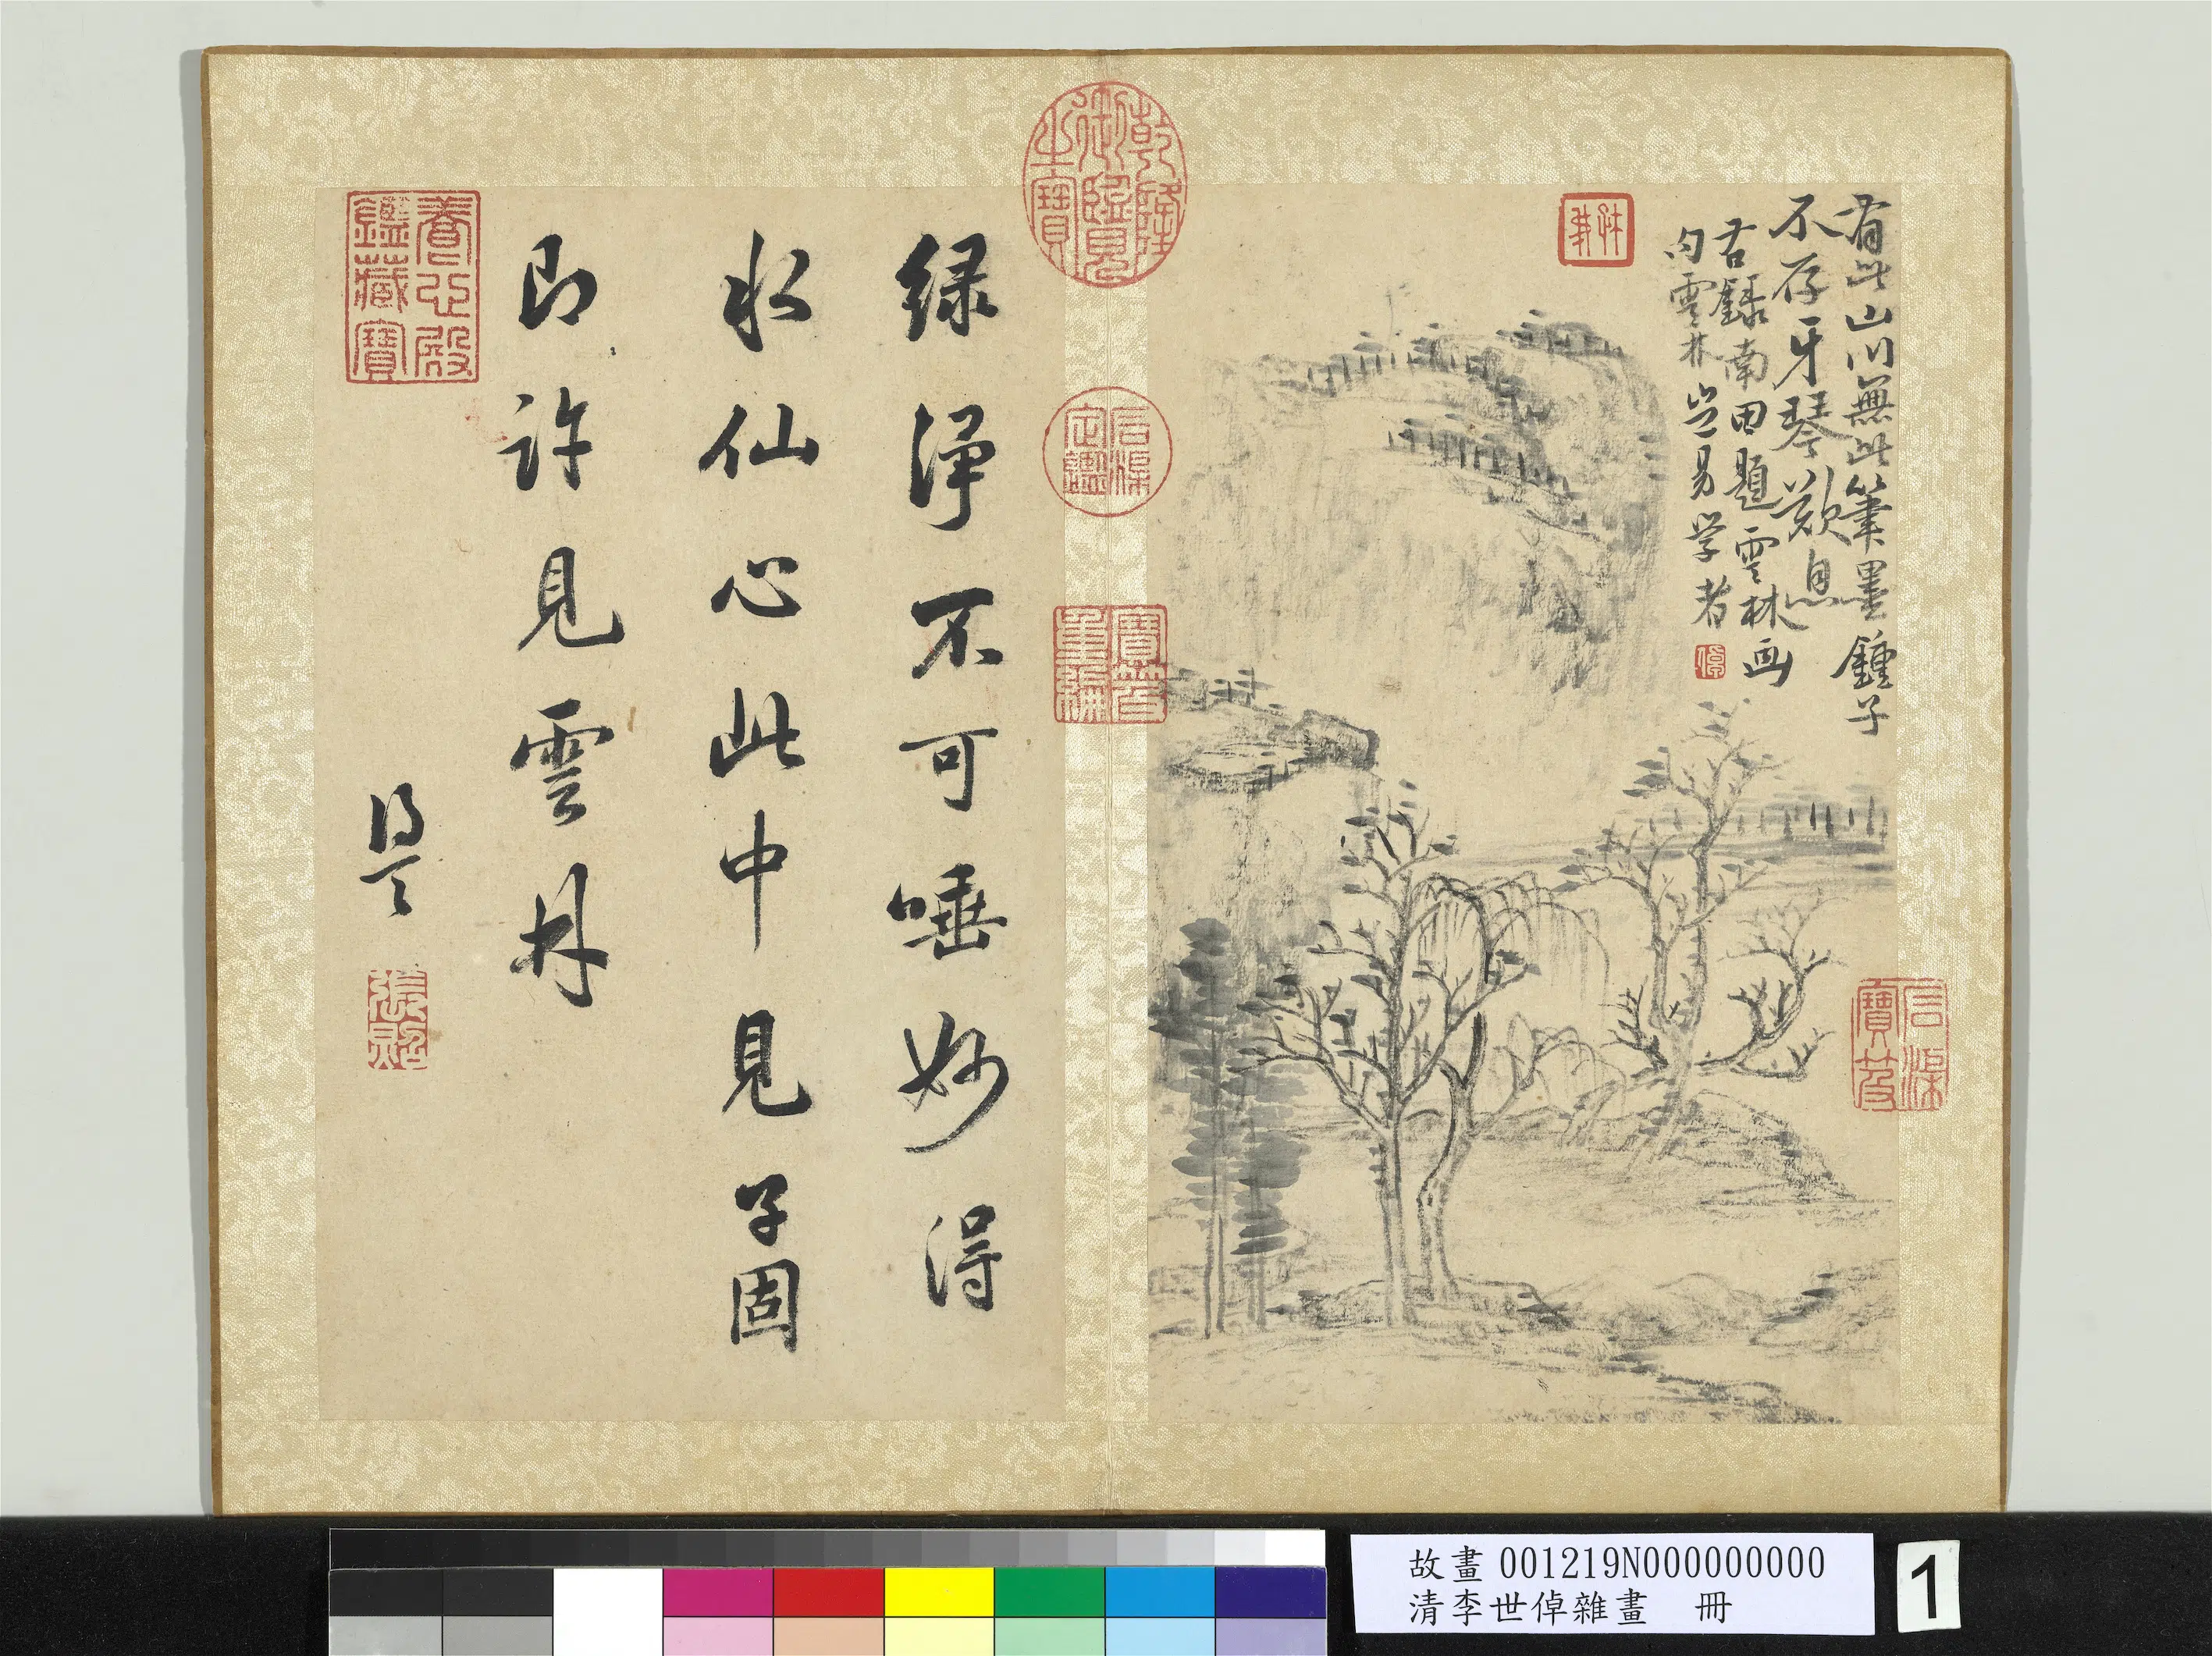 有此山川無此筆墨鍾子
不存牙琴歎息
右錄南田題雲林画
句雲林豈易学者
乾隆御覽之寶
石渠定鑑
寶笈重編
石渠寶笈
綠淨不可唾妙得
水仙心此中見子固
即許見雲月
得天
張照
養心殿鑑藏寶
故畫 001219N000000000
清李世倬雜畫 冊
1